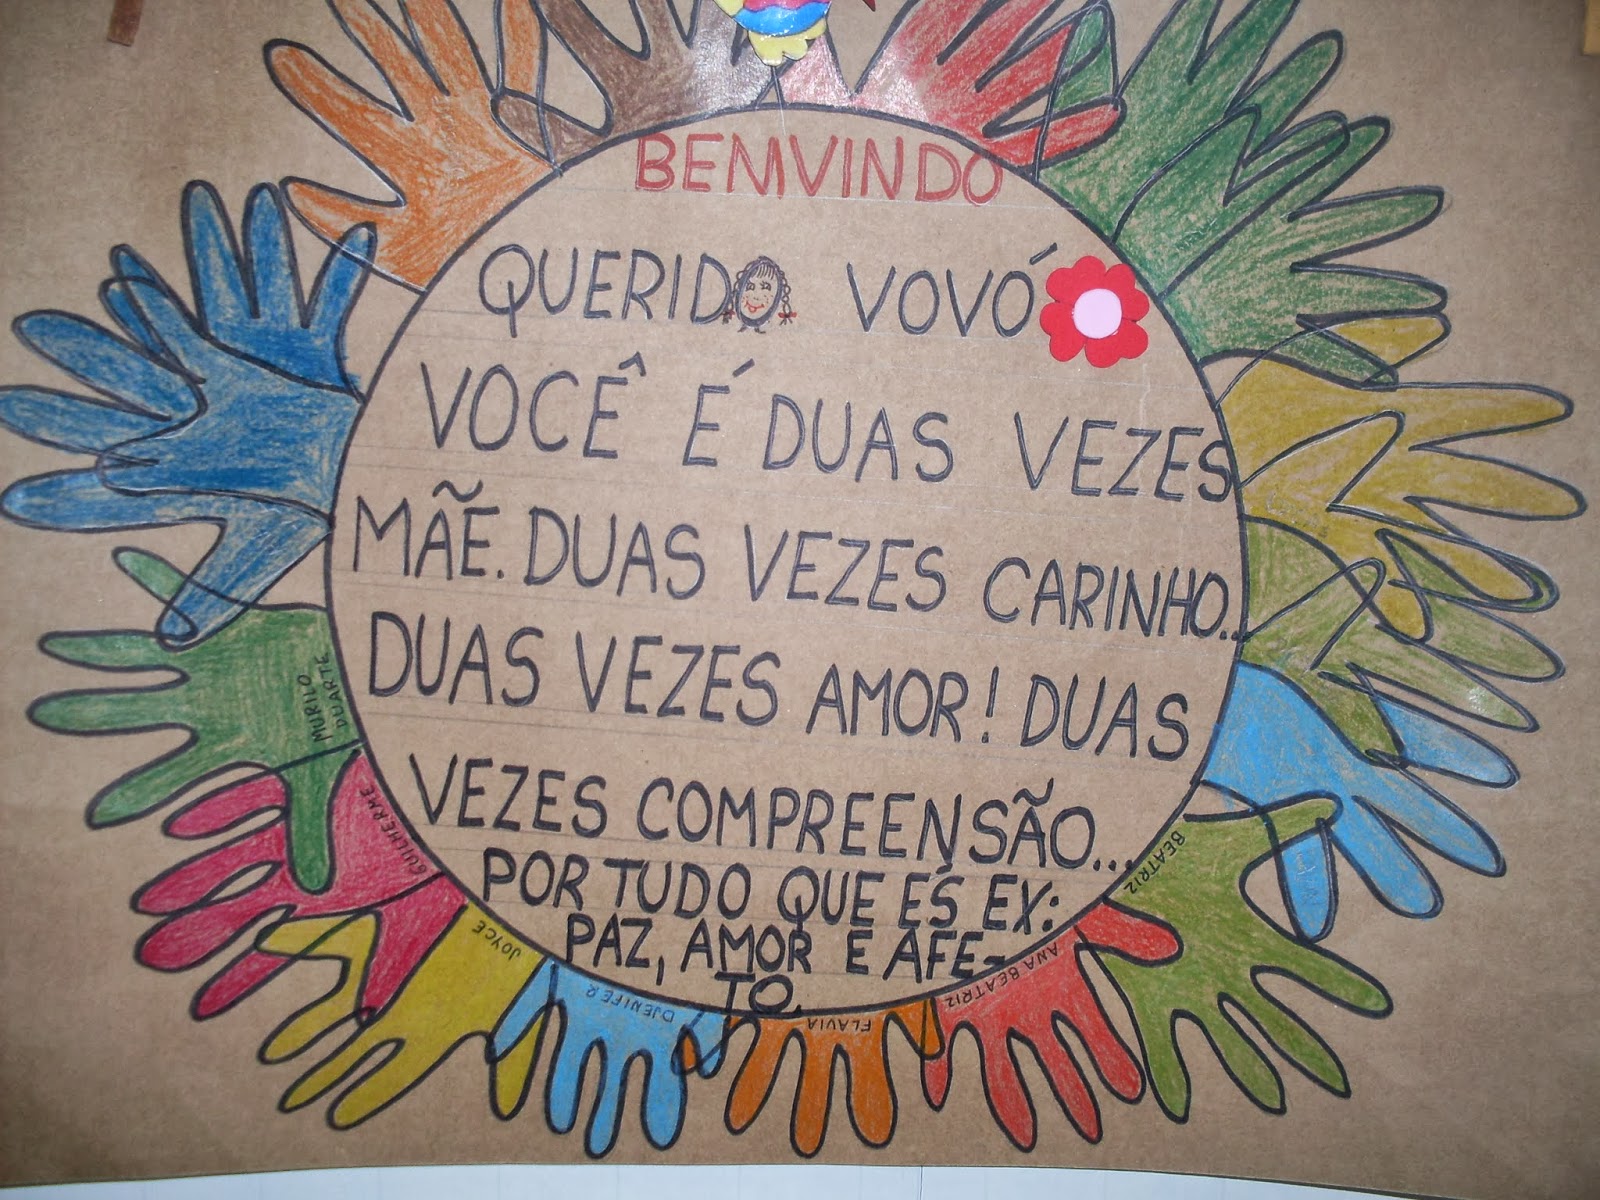 BEMVINDO
QUERIDO VOVÓ
VOCÊ É DUAS VEZES
MÃE. DUAS VEZES CARINHO...
DUAS VEZES AMOR! DUAS
VEZES COMPREENSÃO...
POR TUDO QUE ÉS EX:
PAZ, AMOR E AFE-
TO.
MURILO
DUARTE
GUILHERME
JOYCE
DJENIFER
FLAVIA
ANA BEATRIZ
BEATRIZ